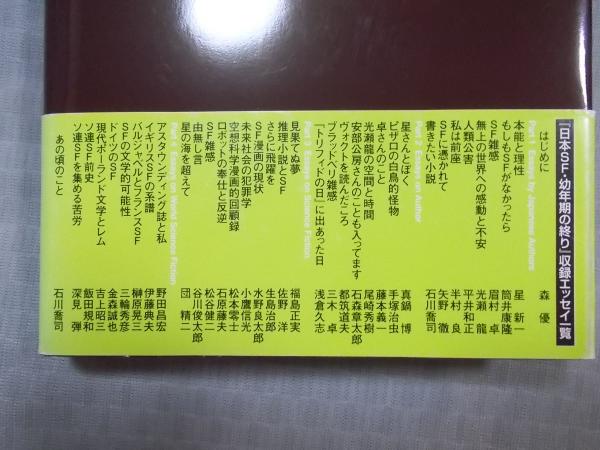 『日本SF・幼年期の終り』収録エッセイ一覧
はじめに 森 優
Part 1 Essays by Japanese Authors
本能と理性 星 新一
もしもSFがなかったら 筒井康隆
SF雑感 眉村 卓
無上の世界への感動と不安 光瀬 龍
人類公害 平井和正
私は前座 半村 良
SFに憑かれて 矢野 徹
書きたい小説 石川喬司
Part 2 Essays on Author
星さんとぼく 真鍋 博
ピザロの白鳥的怪物 手塚治虫
卓さんのこと 藤本義一
光瀬龍の空間と時間 尾崎秀樹
安部公房さんのことも入ってます 石森章太郎
ヴォクトを読んだころ 都筑道夫
ブラッドベリ雑感 三木 卓
「トリフィドの日」に出あった日 浅倉久志
Part 3 Essays on Science Fiction
見果てぬ夢 福島正実
推理小説とSF 佐野 洋
さらに飛躍を 生島治郎
SF漫画の現状 水野良太郎
未来社会の犯罪学 小鷹信光
空想科学漫画的回顧録 松本零士
ロボットの奉仕と反逆 石原藤夫
SF雑感 松谷健二
由無し言 谷川俊太郎
星の海を超えて 団 精二
Part 4 Essays on World Science Fiction
アスタウンディング誌と私 野田昌宏
イギリスSFの系譜 伊藤典夫
バルジャベルとフランスSF 榊原晃三
SFの文学的可能性 三輪秀彦
ドイツのSF 金森誠也
現代ポーランド文学とレム 吉上昭三
ソ連SF前史 飯田規和
ソ連SFを集める苦労 深見 弾
あの頃のこと 石川喬司